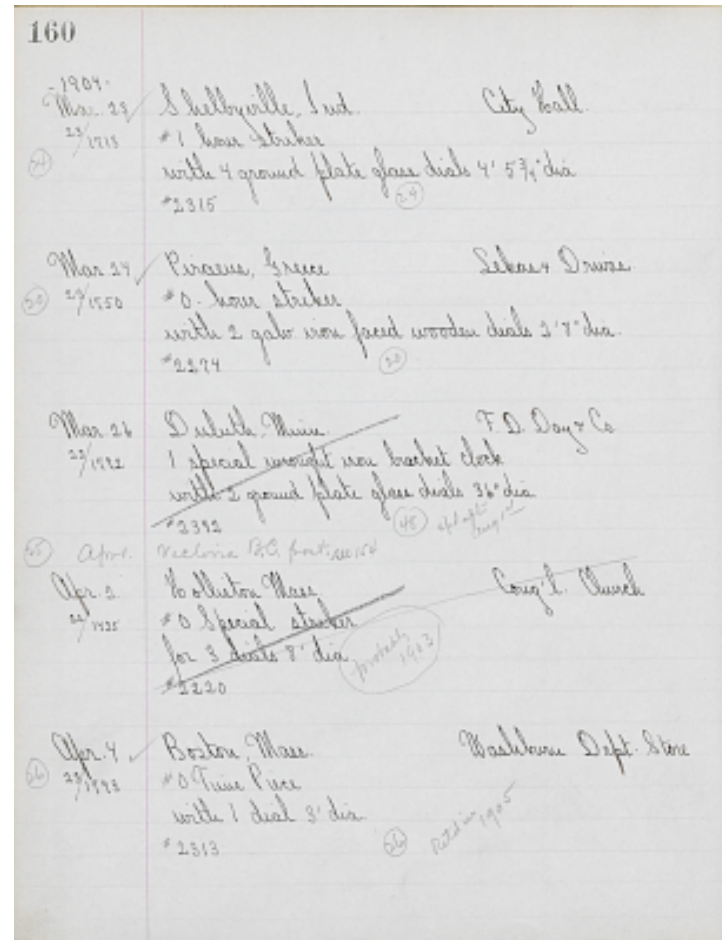 160
-1904-
Mar. 23 ✓ Shelbyville, Ind. City Hall.
23/1713 #1 hour striker
24 with 4 ground plate glass dials 4' 5 3/4" dia
#2315 24
Mar. 24 ✓ Piraeus, Greece
23/1550 #0 hour striker
with 2 galv iron faced wooden dials 2'8" dia.
#2274 20
Mar. 26 Duluth, Minn. F. D. Day & Co
1 special wrought iron bracket clock
with 2 ground plate glass dials 36" dia
#2392 48
Apr 1. Victoria B.C.
Apr. 2 Holliston Mass Cong'l. Church
#0 Special striker
for 3 dials 8' dia
#2220 probably 1903
Apr. 4 ✓ Boston, Mass. Washburn Dept. Store
26 #0 Time Piece
with 1 dial 3' dia
#2313 26 Ret'd in 1905